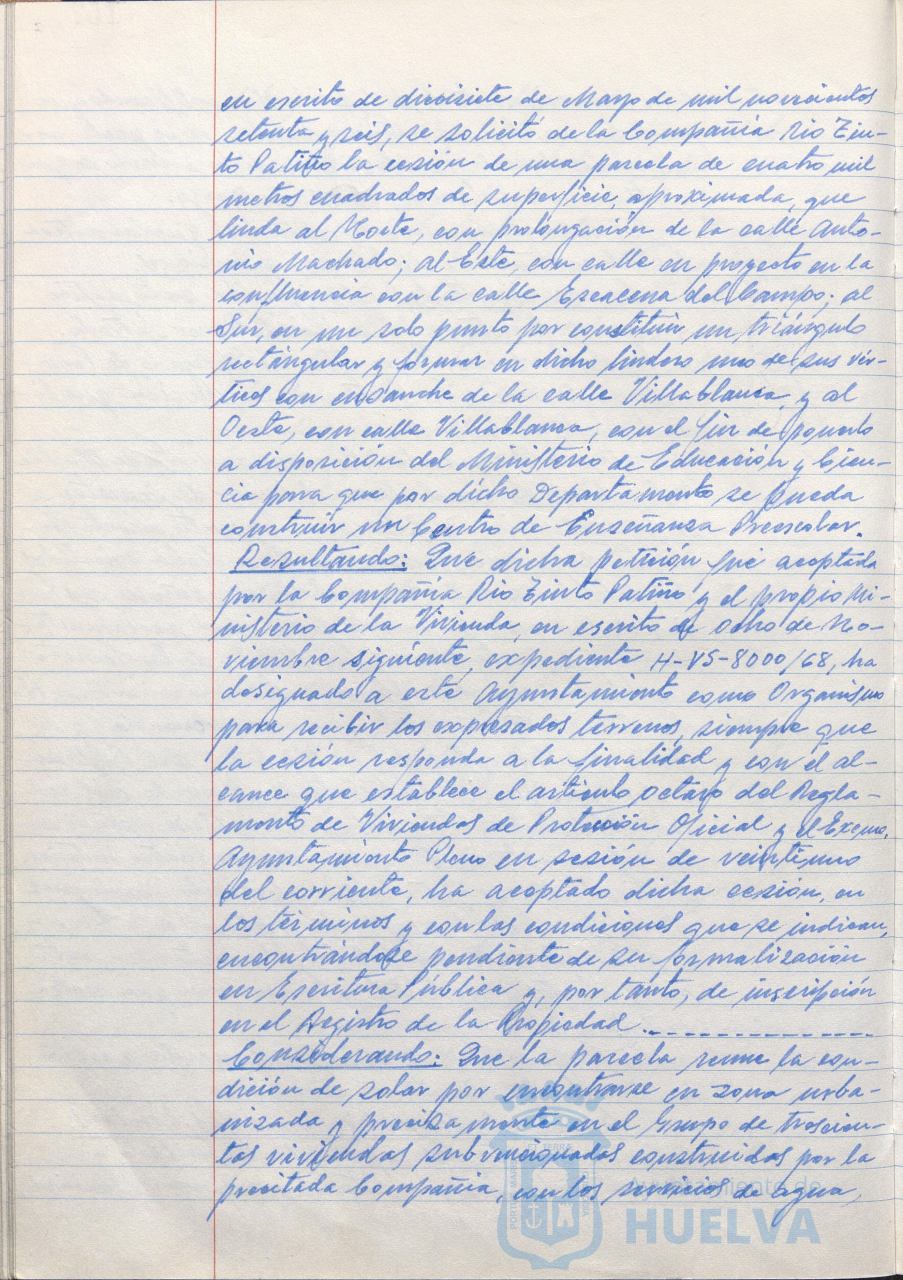 en escrito de diecisiete de Mayo de mil novecientos
setenta y seis, se solicitó de la Compañía Rio Tin-
to Patiño la cesión de una parcela de cuatro mil
metros cuadrados de superficie aproximada, que
linda al Norte, con prolongación de la calle Anto-
nio Machado; al Este, con calle en proyecto en la
confluencia con la calle Escacena del Campo; al
Sur, en un solo punto por constituir un triángulo
rectángular y formar en dicho lindero uno de sus vér-
tices con ensanche de la calle Villablanca y al
Oeste, con calle Villablanca, con el fin de ponerlo
a disposición del Ministerio de Educación y Cien-
cia para que por dicho Departamento se pueda
construir un Centro de Enseñanza Preescolar.
Resultando: Que dicha petición fué aceptada
por la Compañía Rio Tinto Patiño y el propio Mi-
nisterio de la Vivienda, en escrito de ocho de No-
viembre siguiente, expediente H-VS-8000/68, ha
designado a este Ayuntamiento como Organismo
para recibir los expresados terrenos, siempre que
la cesión responda a la finalidad y con el al-
cance que establece el artículo octavo del Regla-
mento de Viviendas de Protección Oficial y el Excmo.
Ayuntamiento Pleno en sesión de veintiuno
del corriente, ha aceptado dicha cesión, en
los términos y con las condiciones que se indican,
encontrándose pendiente de su formalización
en Escritura Pública y, por tanto, de inscripción
en el Registro de la Propiedad.
Considerando: Que la parcela reune la con-
dición de solar por encontrarse en zona urba-
nizada y precisamente en el Grupo de trescien-
tas viviendas subvencionadas construidas por la
precitada Compañía, con los servicios de agua,
Ayuntamiento de
HUELVA